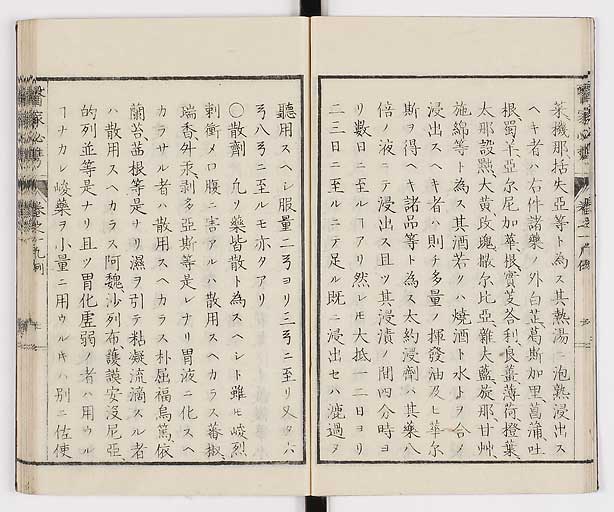 葉機那括失亞等ト為ス其熱湯ニ泡熟浸出ス
ヘキ者ハ右件諸藥ノ外白芷葛斯加里菖蒲吐
根蜀羊亞尓尼加華根實芰荅利良薑薄荷橙葉
太那設黙大黄玫瑰
施綿等ト為ス其酒若クハ焼酒ト水トヲ合ノ
浸出スヘキ者ハ則チ多量ノ揮發油及ヒ華尓
斯ヲ得ヘキ諸品等ト為ス大約浸劑ハ其藥八
倍ノ液ニテ浸出ス且ツ其浸漬ノ間四分時ヨ
リ數日ニ至ルヿアリ然レ𪜈大抵一二日ヨリ
二三日ニ至ルニテ足ル既ニ浸出セハ漉過ヲ
聽用スヘシ服量二弓ヨリ三弓ニ至リ又タ六
弓八弓ニ至ルモ亦タアリ
〇散劑 凢ソ藥皆散ト為スヘシト雖𪜈峻烈
刺衝メ口腹ニ害アルハ散用スヘカラス蕃椒
瑞香外汞剥多亞斯等是レナリ胃液ニ化スヘ
カラサル者ハ散用スヘカラス朴屈福烏篤依
蘭苔茁根等是ナリ濕ヲ引テ粘凝流滴スル者
ハ散用スヘカラス阿魏沙列布護謨安没尼亞
的列並等是ナリ且ツ胃化虚弱ノ者ハ用ウル
ヿナカレ峻藥ヲ小量ニ用ウルキハ別ニ佐使